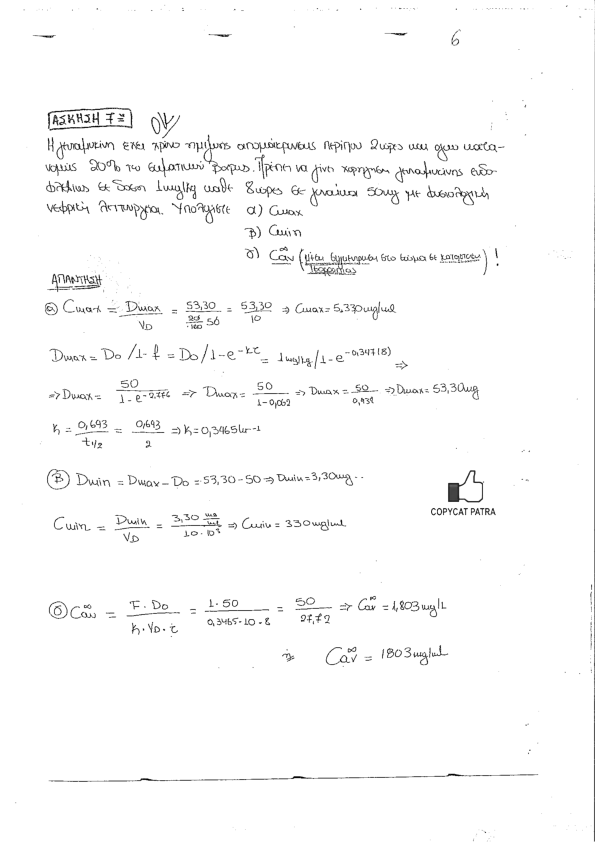 6
ΑΣΚΗΣΗ 7Ξ
Η γενταμυκίνη έχει χρόνο ημιζωής απομάκρυνσης περίπου 2 ώρες και όγκο κατα-
νομής 20% του σωματικού βάρους. Πρέπει να γίνει χορήγηση γενταμυκίνης ενδο-
φλεβίως σε δόση 1mg/kg κάθε 8 ώρες σε γυναίκα 50kg με φυσιολογική
νεφρική λειτουργία. Υπολογίστε α) Cmax
β) Cmin
γ) Cav∞ (μέση συγκέντρωση στο πλάσμα σε κατάσταση ισορροπίας) !
ΑΠΑΝΤΗΣΗ
α) Cmax = Dmax/VD = 53,30/(20/100·50) = 53,30/10 ⇒ Cmax = 5,330mg/ml
Dmax = Do/1-f = Do/1-e^-kτ = 1mg/kg/1-e^-0,347(8) ⇒
⇒ Dmax = 50/1-e^-2,776 ⇒ Dmax = 50/1-0,062 ⇒ Dmax = 50/0,938 ⇒ Dmax = 53,30mg
k = 0,693/t1/2 = 0,693/2 ⇒ k = 0,3465hr-1
β) Dmin = Dmax - Do = 53,30-50 ⇒ Dmin = 3,30mg
COPYCAT PATRA
Cmin = Dmin/VD = 3,30/10·10³ ⇒ Cmin = 330mg/ml
γ) Cav∞ = F·Do/k·VD·τ = 1·50/0,3465·10·8 = 50/27,72 ⇒ Cav∞ = 1,803mg/L
ή Cav∞ = 1803mg/ml